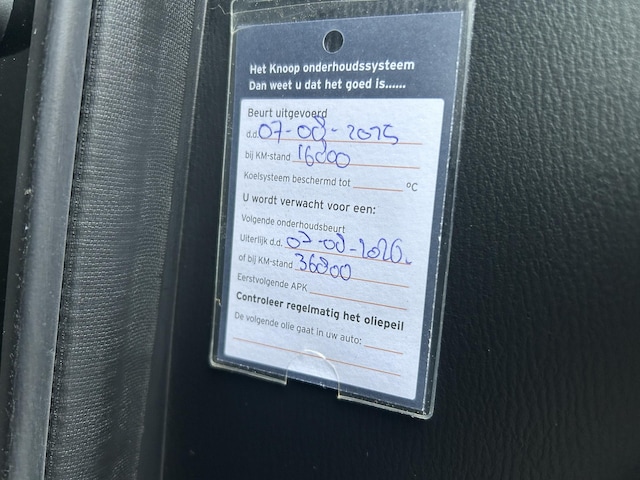 Het Knoop onderhoudssysteem
Dan weet u dat het goed is......
Beurt uitgevoerd
d.d. 07-08-2025
bij KM-stand 16800
Koelsysteem beschermd tot °C
U wordt verwacht voor een:
Volgende onderhoudsbeurt
Uiterlijk d.d. 07-08-2026.
of bij KM-stand 36800
Eerstvolgende APK
Controleer regelmatig het oliepeil
De volgende olie gaat in uw auto: